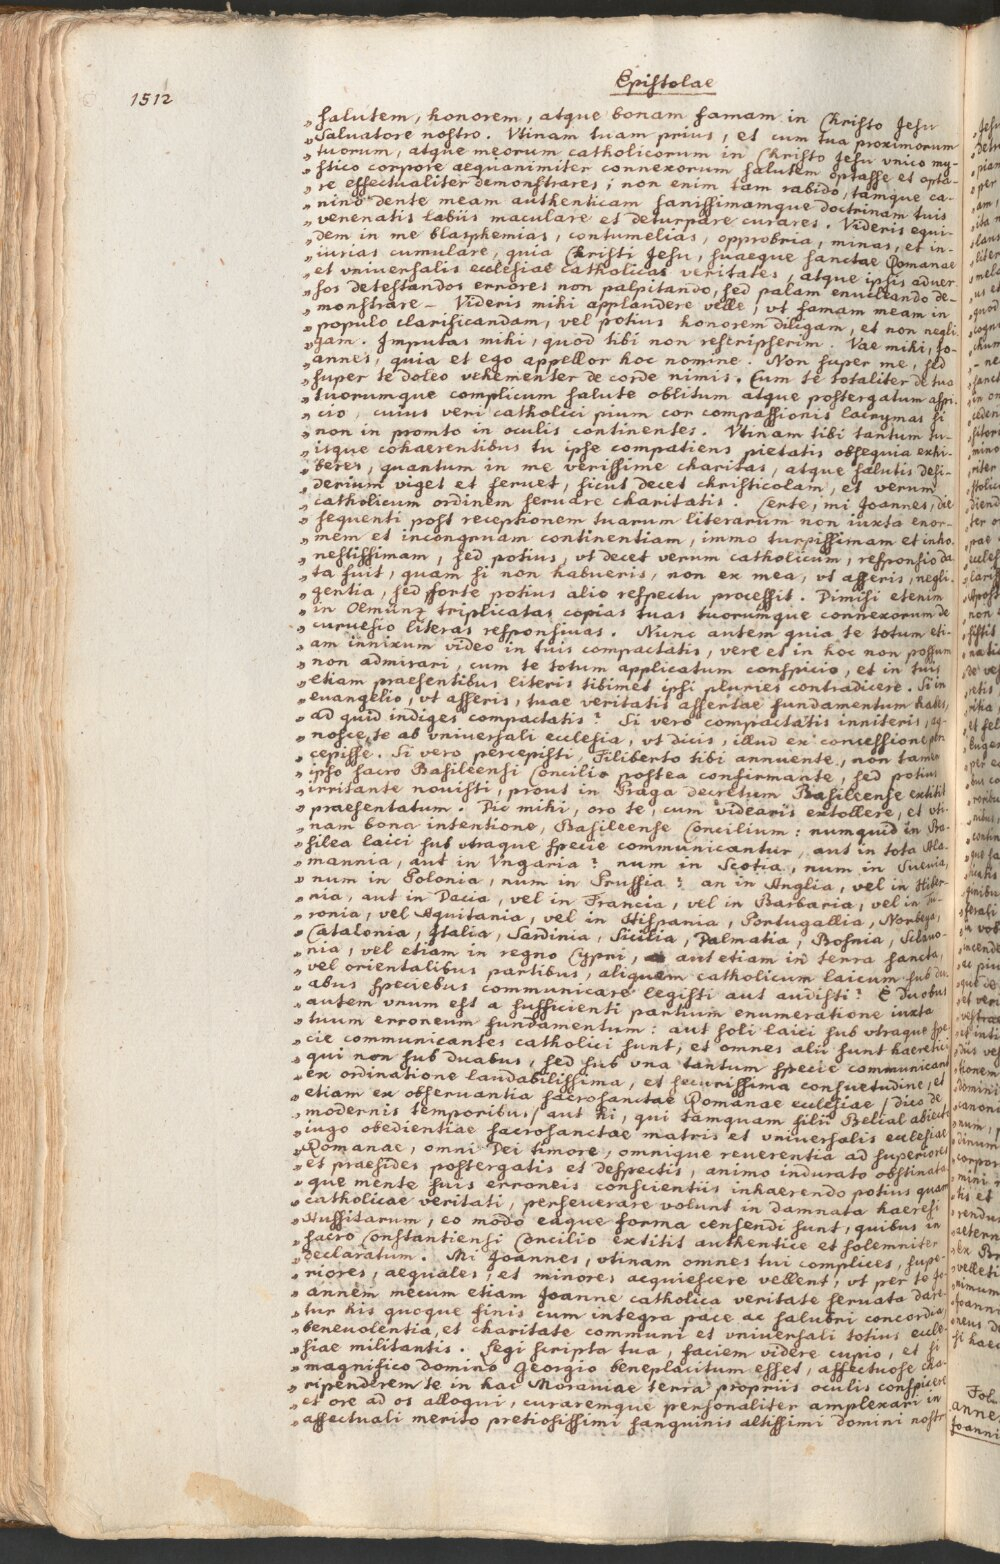 Epistolae
1512
„ salutem, honorem, atque bonam famam in Christo Jesu
„ Salvatore nostro. Vtinam tuam prius, et cum tua proximorum
„ tuorum, atque meorum catholicorum in Christo Jesu vnico my-
„ stico corpore aequanimiter connexorum salutem optasse et opta-
„ re effectualiter demonstrares; non enim tam rabido, tamque ca-
„ nino dente meam authenticam sanissimamque doctrinam tuis
„ venenatis labiis maculare et deturpare curares. Videris equi-
„ dem in me blasphemias, contumelias, opprobria, minas, et in-
„ iurias cumulare, quia Christi Jesu, suaeque sanctae Romanae
„ et vniuersalis ecclesiae catholicas veritates, atque ipsis aduer
„ sos detestandos errores non palpitando, sed palam enucleando de-
„ monstrare. Videris mihi applaudere velle, vt famam meam in
„ populo clarificandam, vel potius honorem diligam, et non negli
„ gam. Imputas mihi, quod tibi non rescripserim. Vae mihi, Jo-
„ annes, quia et ego appellor hoc nomine. Non super me, sed
„ super te doleo vehementer de corde nimis. Cum te totaliter de tua
„ tuorumque complicum salute oblitum atque postergatum aspi-
„ cio, cuius veri catholici pium cor compassionis lacrymas si
„ non in promto in oculis continentes. Vtinam tibi tantum tu-
„ isque cohaerentibus tu ipse compatiens pietatis obsequia exhi-
„ beres, quantum in me verissime charitas, atque salutis desi-
„ derium viget et feruet, sicut decet christicolam, et verum
„ catholicum ordinem seruare charitatis. Certe, mi Joannes, die
„ sequenti post receptionem tuarum literarum non iuxta enor-
„ mem et incongruam continentiam, immo turpissimam et inho-
„ nestissimam, sed potius, vt decet verum catholicum, responsio da
„ ta fuit, quam si non habueris, non ex mea, vt asseris, negli
„ gentia, sed forte potius alio respectu processit. Dimisi etenim
„ in Olmunz triplicatas copias tuas tuorumque connexorum de
„ curuesio literas responsiuas. Nunc autem quia te totum eti-
„ am innixum video in tuis compactatis, vere et in hoc non possum
„ non admirari, cum te totum applicatum conspicio, et in tuis
„ etiam praesentibus literis tibimet ipsi pluries contradicere. Si in
„ euangelio, vt asseris, tuae veritatis assertae fundamentum habes,
„ ad quid indiges compactatis? Si vero compactatis inniteris, ag-
„ nosce, te ab vniuersali ecclesia, vt dicis, illud ex concessione per
„ cepisse. Si vero percepisti, Filiberto tibi annuente, non tamen
„ ipso sacro Basileensi Concilio postea confirmante, sed potius
„ irritante nouisti, prout in Praga decretum Basileense extitit
„ praesentatum. Dic mihi, oro te, cum videaris extollere, et vti-
„ nam bona intentione, Basileense Concilium: numquid in Ba-
„ silea laici sub vtraque specie communicantur, aut in tota Ala-
„ mannia, aut in Vngaria? num in Scotia, num in Suevia,
„ num in Polonia, num in Prussia? an in Anglia, vel in Hiber-
„ nia, aut in Dacia, vel in Francia, vel in Barbaria, vel in Tu-
„ ronia, vel Aquitania, vel in Hispania, Portugallia, Norbega,
„ Catalonia, Italia, Sardinia, Sicilia, Dalmatia, Bosnia, Sclavo-
„ nia, vel etiam in regno Cypri, aut etiam in terra sancta,
„ vel orientalibus partibus, aliquem catholicum laicum sub du
„ abus speciebus communicare legisti aut audisti? E duobus
„ autem vnum est a sufficienti partium enumeratione iuxta
„ tuum erroneum fundamentum: aut soli laici sub vtraque spe
„ cie communicantes catholici sunt, et omnes alii sunt haeretici
„ qui non sub duabus, sed sub vna tantum specie communicant
„ ex ordinatione laudabilissima, et securissima consuetudine, et
„ etiam ex obseruantia sacrosanctae Romanae ecclesiae (dico de
„ modernis temporibus) aut hi, qui tamquam filii Belial abiecto
„ iugo obedientiae sacrosanctae matris et vniuersalis ecclesiae
„ Romanae, omni Dei timore, omnique reuerentia ad superiores
„ et praesides postergatis et despectis, animo indurato obstinata-
„ que mente suis erroneis conscientiis inhaerendo potius quam
„ catholicae veritati, perseuerare volunt in damnata haeresi
„ Hussitarum, eo modo eaque forma censendi sunt, quibus in
„ sacro Constantiensi Concilio extitit authentice et solemniter
„ declaratum. Mi Joannes, vtinam omnes tui complices, supe-
„ riores, aequales, et minores acquiescere vellent, vt per te Jo-
„ annem mecum etiam Joanne catholica veritate seruata dare-
„ tur his quoque finis cum integra pace ac salubri concordia,
„ beneuolentia, et charitate communi et vniuersali totius eccle-
„ siae militantis. Legi scripta tua, faciem videre cupio, et si
„ magnifico domino Georgio beneplacitum esset, affectuose cha-
„ ripenderem te in hac Morauiae terra propriis oculis conspicere
„ et ore ad os alloqui, curaremque personaliter amplexari in
„ affectuali merito pretiosissimi sanguinis altissimi domini nostr